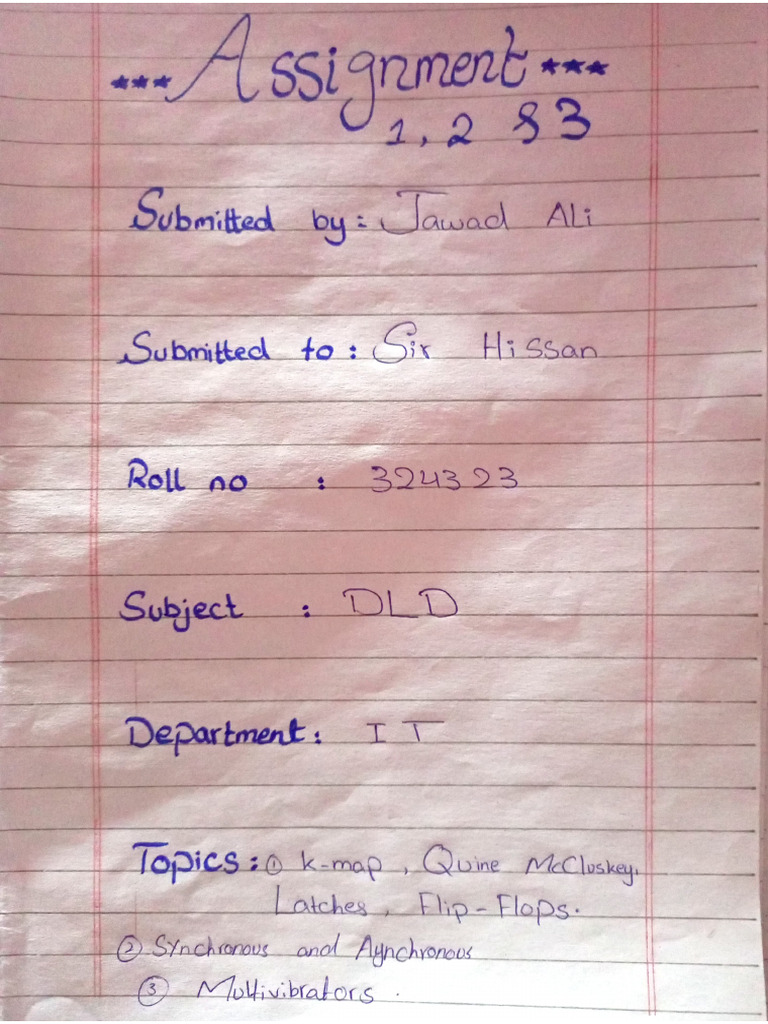 *** Assignment ***
1, 2 & 3
Submitted by: Jawad Ali
Submitted to: Sir Hissan
Roll no : 324323
Subject : DLD
Department: IT
Topics: ① k-map, Quine McCluskey,
Latches, Flip-Flops.
② Synchronous and Aynchronous
③ Multivibrators.